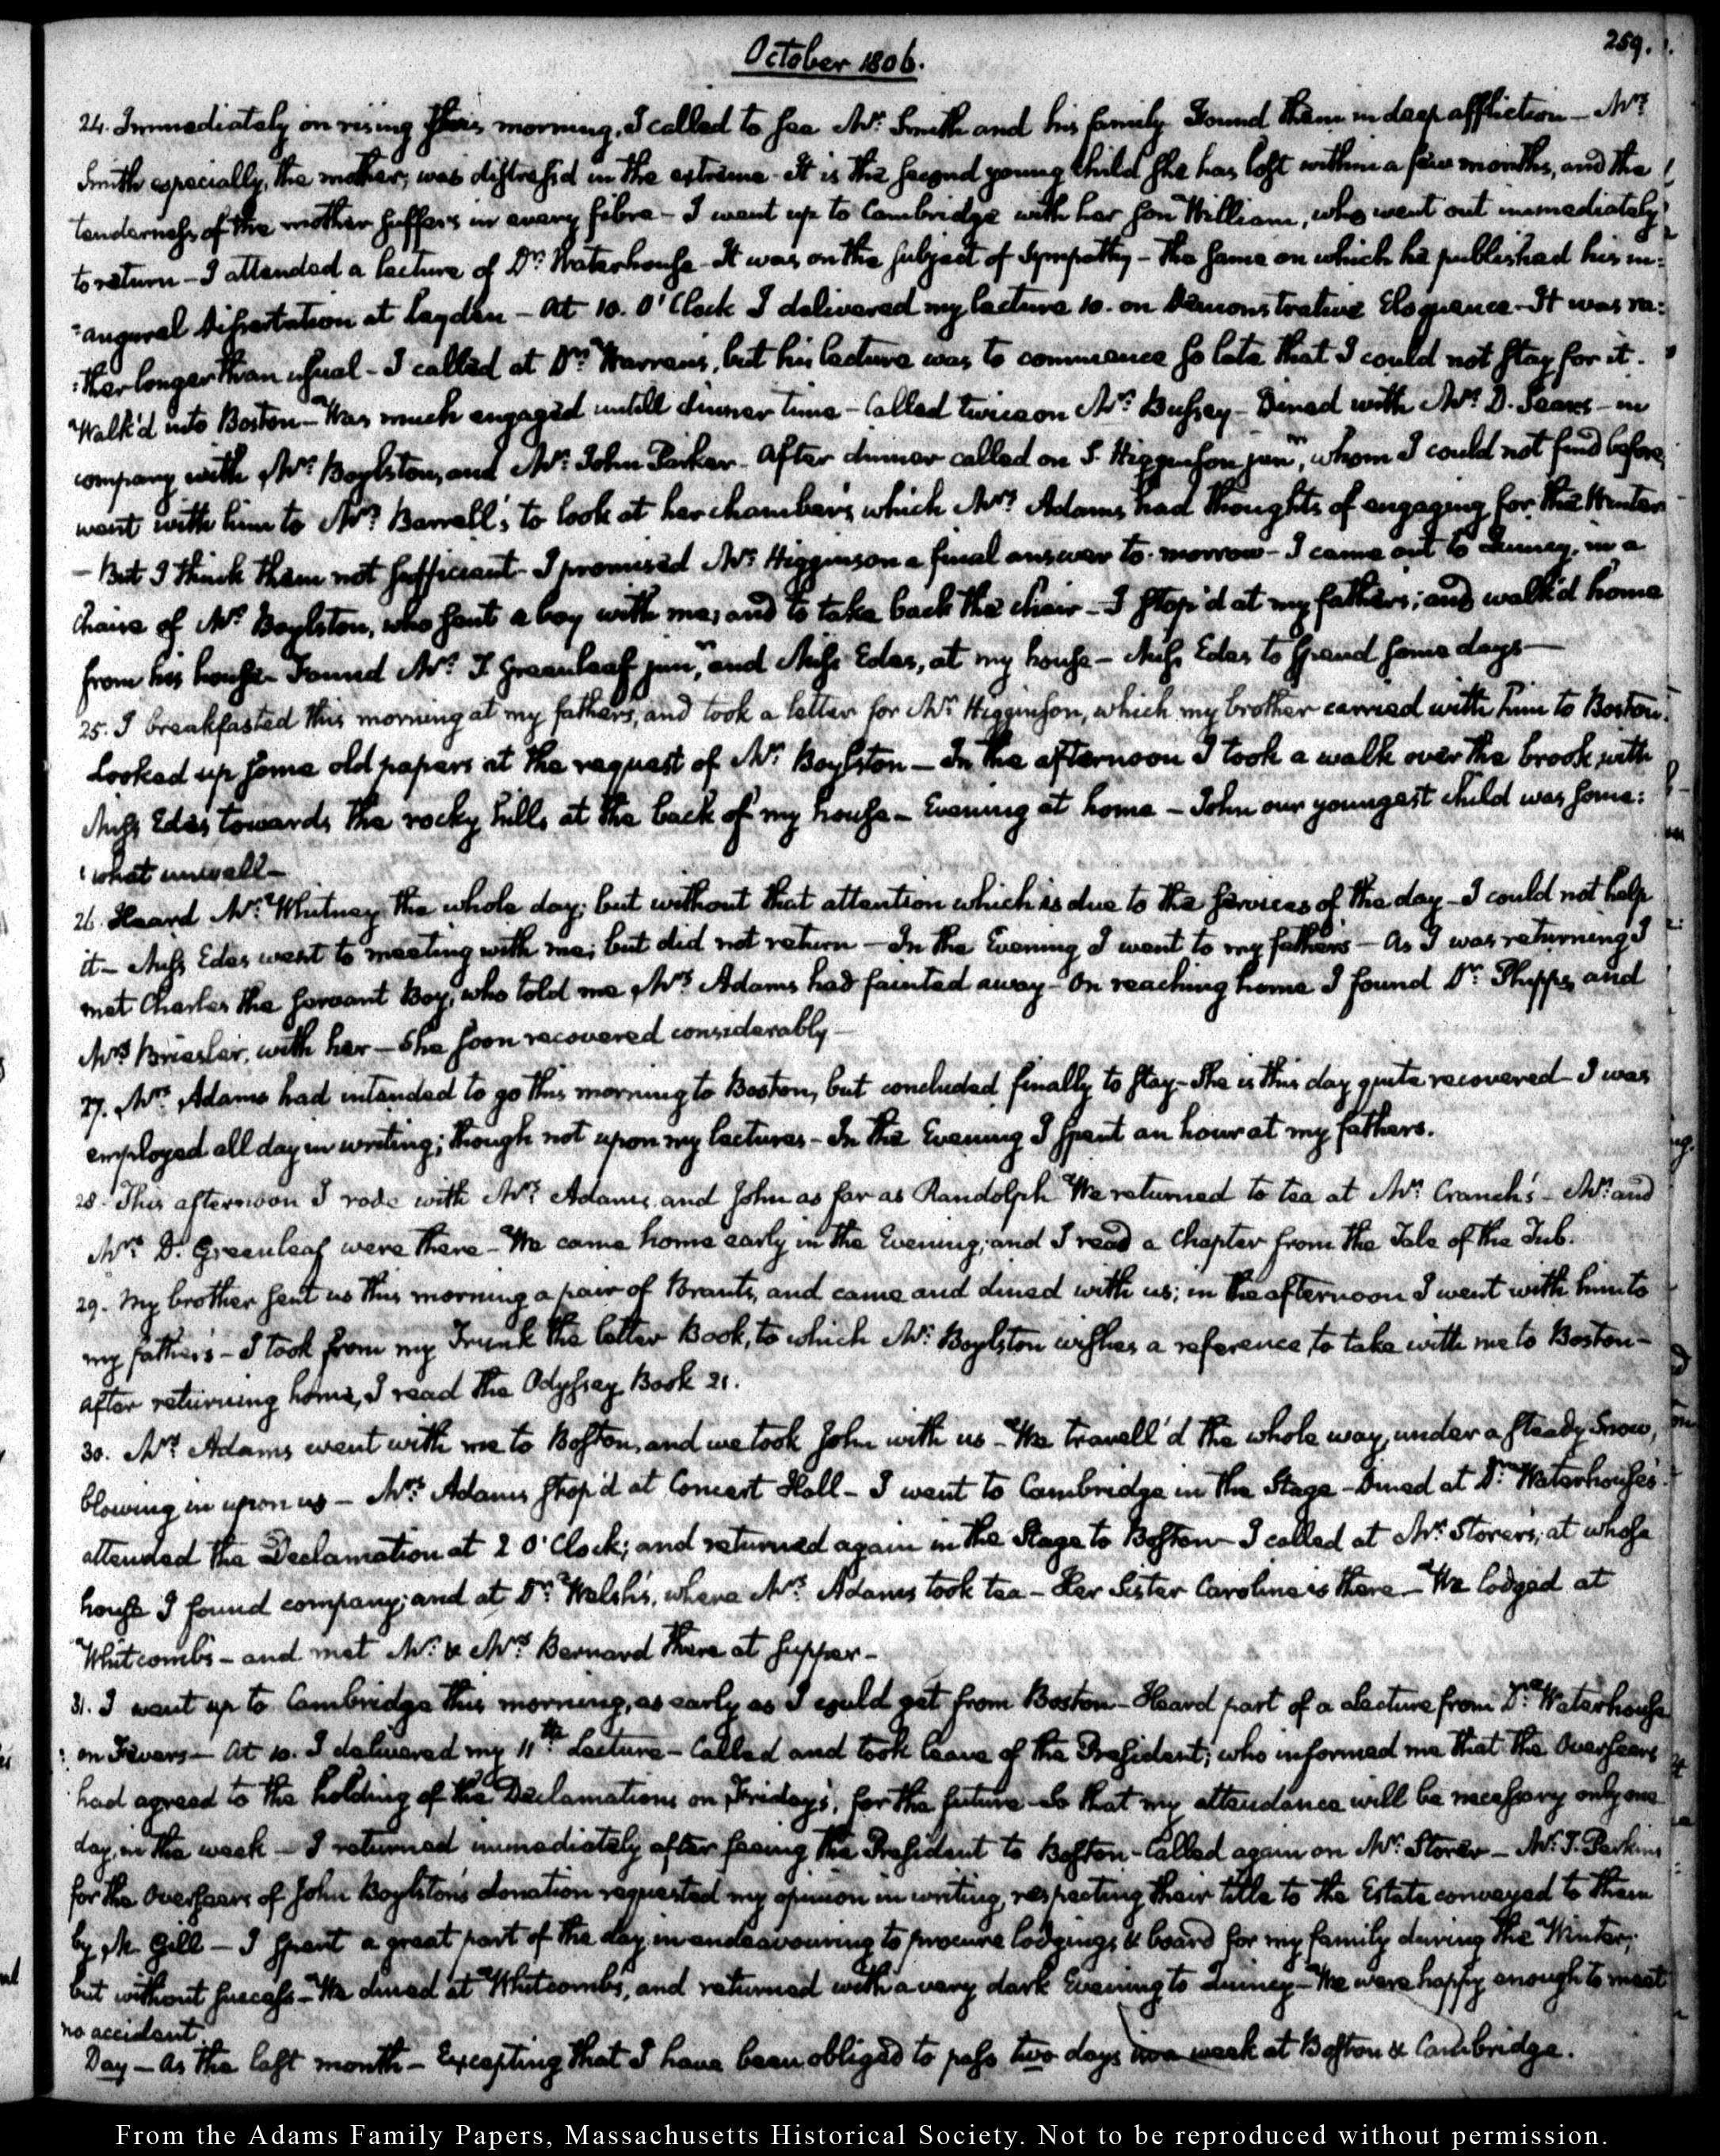 259.
October 1806.
24. Immediately on rising this morning, I called to see Mr: Smith and his family. Found them in deep affliction — Mrs:
Smith especially, the mother, was distressed in the extreme. It is the second young child she has lost within a few months, and the
tenderness of the mother suffers in every fibre — I went up to Cambridge with her son William, who went out immediately
to return — I attended a lecture of Dr: Waterhouse — It was on the subject of Sympathy — the same on which he published his in:
:augural dissertation at Leyden — At 10. O'Clock I delivered my lecture 10. on Demonstrative Eloquence — It was ra:
:ther longer than usual — I called at Dr: Warren's, but his lecture was to commence so late that I could not stay for it.
Walk'd into Boston — Was much engaged untill dinner time — Called twice on Mr: Bussey — Dined with Mr: D. Sears — in
company with Mr: Boylston, and Mr: John Parker. After dinner called on S. Higginson junr, whom I could not find before,
went with him to Mrs: Barrell's to look at her chambers which Mrs: Adams had thoughts of engaging for the Winter
— But I think them not sufficient — I promised Mr: Higginson a final answer to-morrow — I came out to Quincy, in a
Chaise of Mr: Boylston, who sent a boy with me, and to take back the chair — I stop'd at my father's; and walk'd home
from his house — Found Mr: T. Greenleaf junr, and Miss Edes, at my house — Miss Edes to spend some days —
25. I breakfasted this morning at my father's, and took a letter for Mr: Higginson, which my brother carried with him to Boston.
Looked up some old papers at the request of Mr: Boylston — In the afternoon I took a walk over the brook, with
Miss Edes towards the rocky hills at the back of my house — Evening at home — John our youngest child was some:
:what unwell —
26. Heard Mr: Whitney the whole day; but without that attention which is due to the services of the day — I could not help
it — Miss Edes went to meeting with me; but did not return — In the Evening I went to my father's — As I was returning I
met Charles the servant Boy, who told me Mrs: Adams had fainted away — On reaching home I found Dr: Phipps, and
Mrs: Briesler, with her — She soon recovered considerably —
27. Mrs: Adams had intended to go this morning to Boston, but concluded finally to stay — She is this day quite recovered — I was
employed all day in writing; though not upon my lectures — In the Evening I spent an hour at my father's.
28. This afternoon I rode with Mrs: Adams and John as far as Randolph. We returned to tea at Mr: Cranch's — Mr: and
Mrs: D. Greenleaf were there — We came home early in the Evening; and I read a Chapter from the Tale of the Tub.
29. My brother sent us this morning a pair of Brants, and came and dined with us; in the afternoon I went with him to
my father's — I took from my Trunk the letter Book, to which Mr: Boylston wishes a reference, to take with me to Boston —
After returning home, I read the Odyssey Book 21.
30. Mrs: Adams went with me to Boston, and we took John with us — We travell'd the whole way, under a steady Snow,
blowing in upon us — Mrs: Adams stop'd at Concert Hall — I went to Cambridge in the Stage — Dined at Dr: Waterhouse's
attended the Declamation at 2 O'Clock; and returned again in the Stage to Boston — I called at Mr: Storer's, at whose
house I found company; and at Dr: Welsh's, where Mrs: Adams took tea — Her Sister Caroline is there — We lodged at
Whitcomb's — and met Mr: & Mrs: Bernard there at supper —
31. I went up to Cambridge this morning, as early as I could get from Boston — Heard part of a Lecture from Dr: Waterhouse
: on Fevers — At 10. I delivered my 11th: Lecture — Called and took leave of the President; who informed me that the Overseers
had agreed to the holding of the Declamations on Friday's, for the future — So that my attendance will be necessary only one
day, in the week — I returned immediately after seeing the President to Boston — Called again on Mr: Storer — Mr: T. Perkins
for the Overseers of John Boylston's donation requested my opinion in writing, respecting their title to the Estate conveyed to them
by M. Gill — I spent a great part of the day in endeavouring to procure lodgings & board for my family during the Winter;
but without success — We dined at Whitcomb's, and returned with a very dark Evening to Quincy — We were happy enough to meet
no accident.
Day — As the last month — Excepting that I have been obliged to pass two days in a week at Boston & Cambridge.
From the Adams Family Papers, Massachusetts Historical Society. Not to be reproduced without permission.